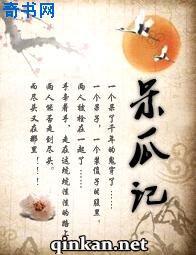 奇书网
呆瓜记
一个呆了千年的鬼穿了……
一个呆子，一个装傻子的腹黑，
两人被栓在一起了……
手牵着手，走在这 的路上
两人能否走到尽头。
而尽头又在哪里！！！……
qinkan.net